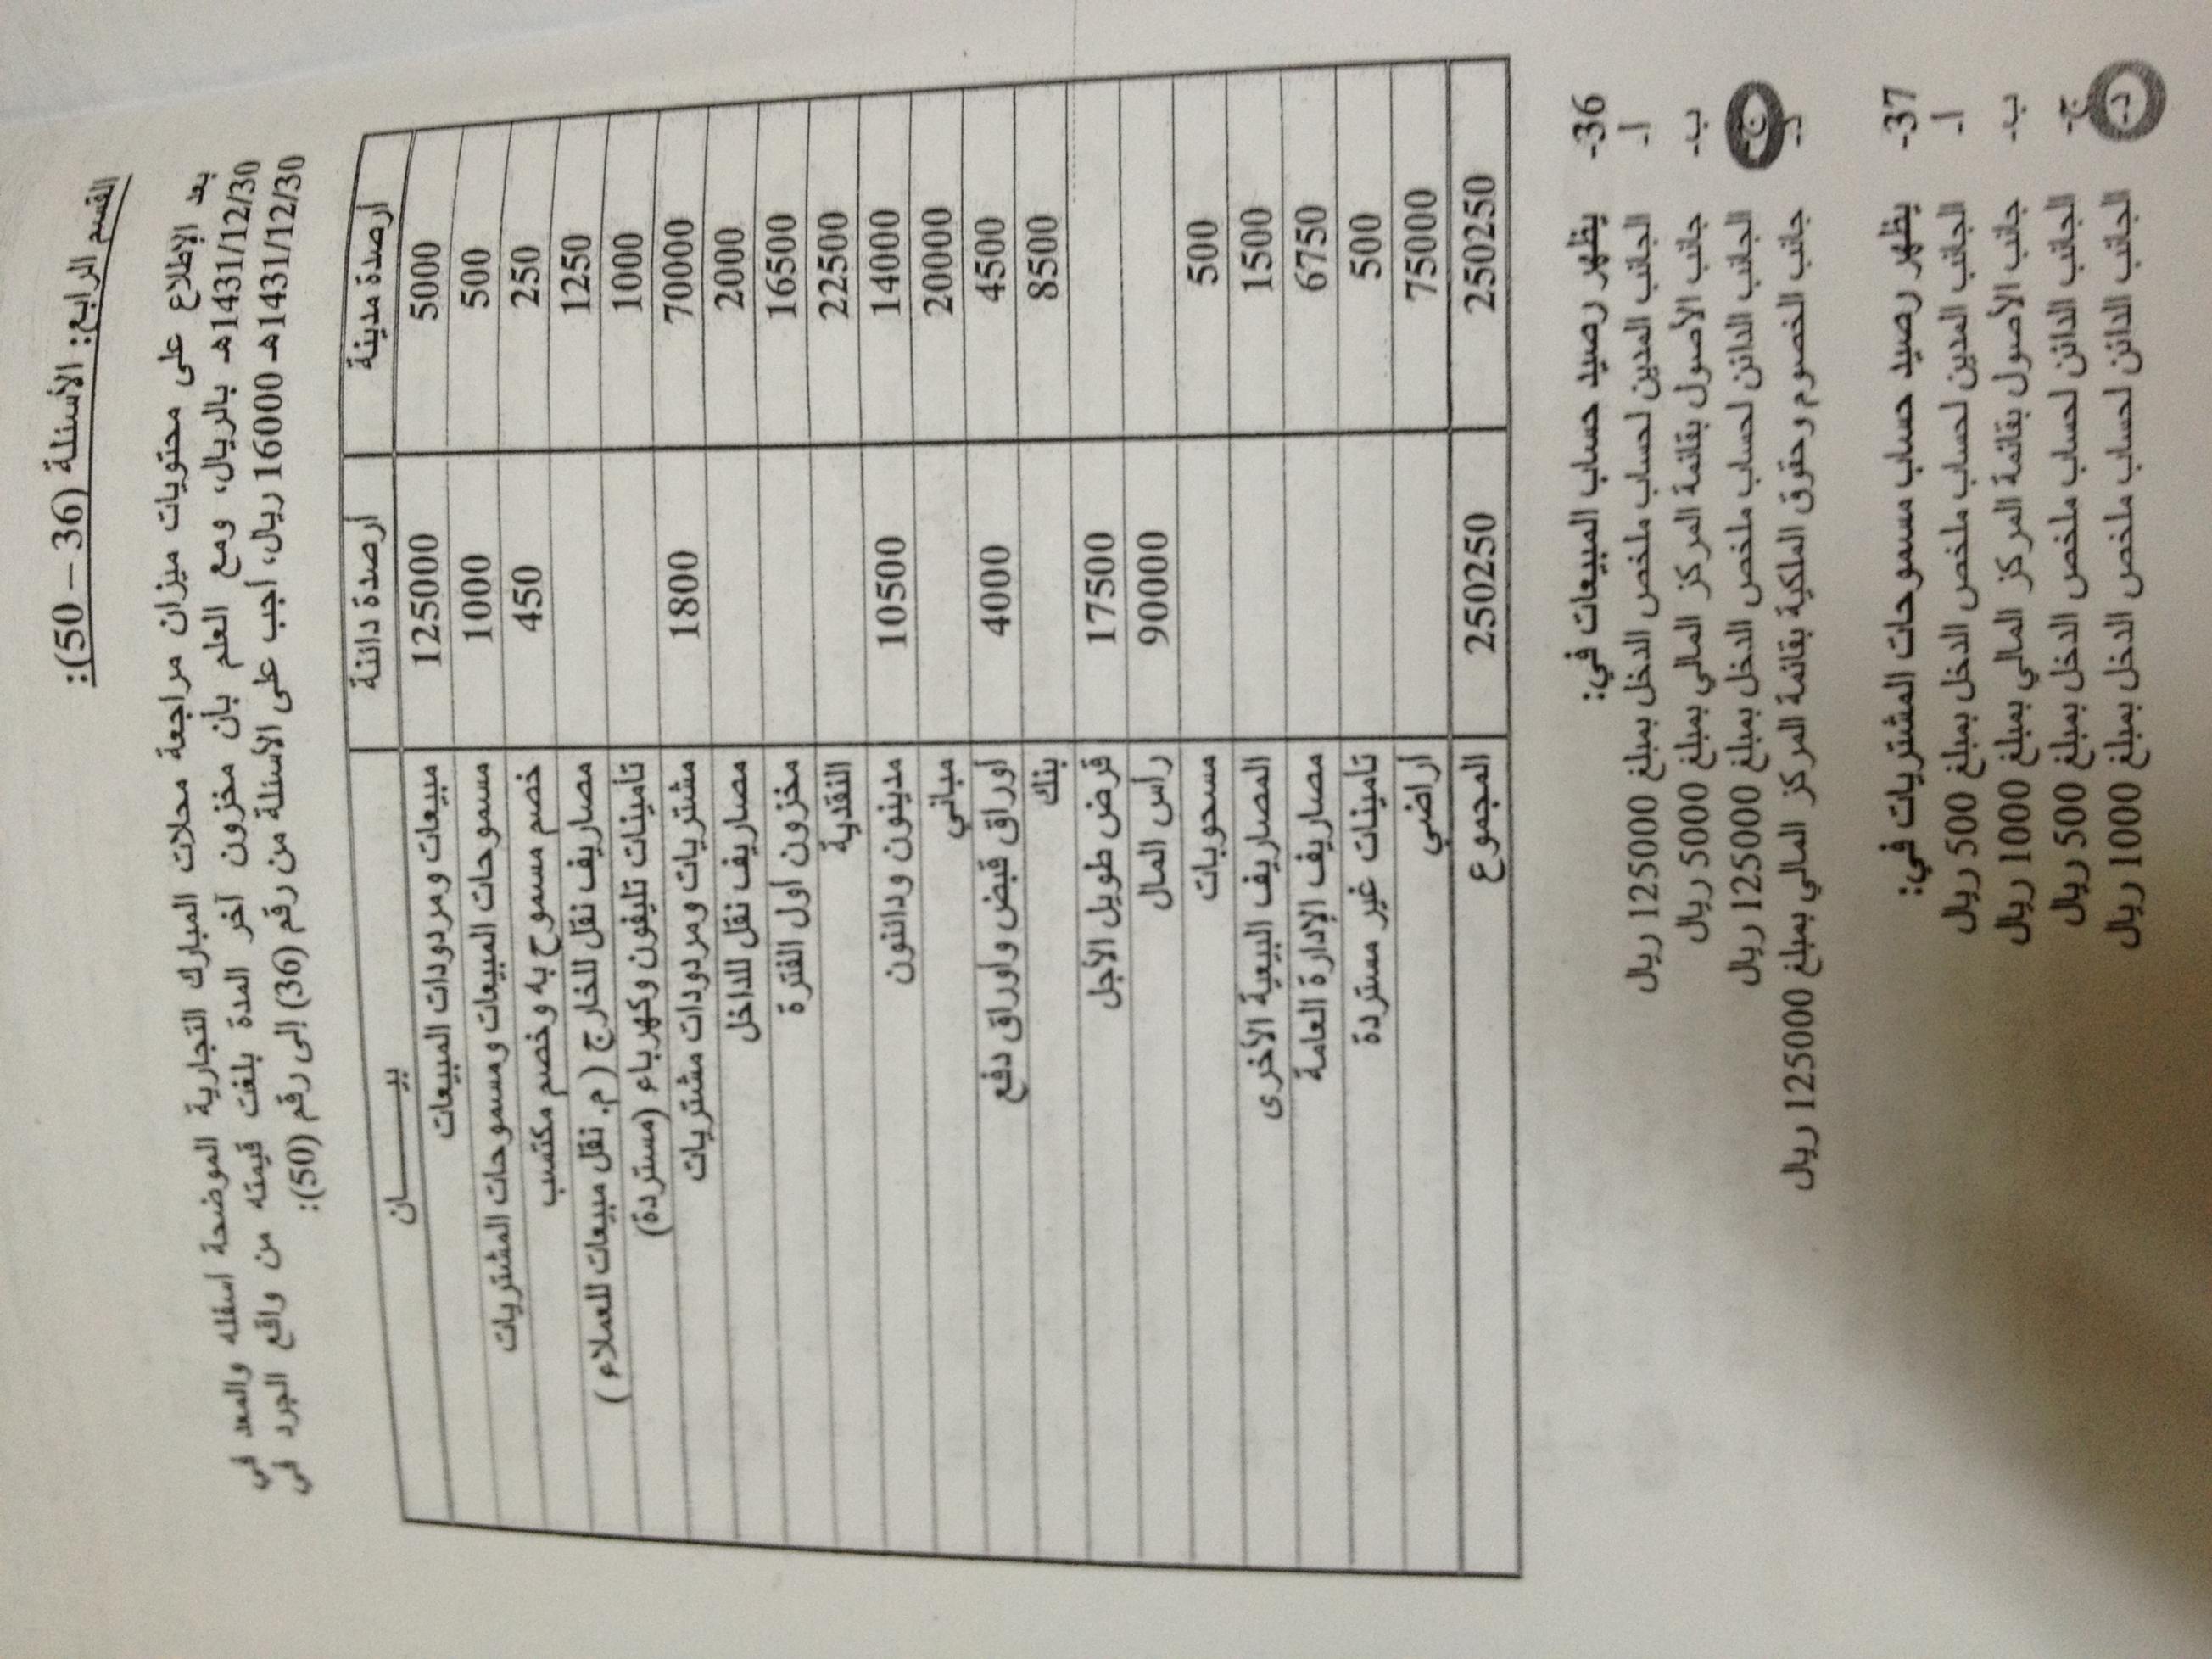 القسم الرابع: الأسئلة (36 – 50):
بعد الإطلاع على محتويات ميزان مراجعة محلات المبارك التجارية الموضحة أسفله والمعد في
1431/12/30هـ بالريال، ومع العلم بأن مخزون آخر المدة بلغت قيمته من واقع الجرد في
1431/12/30هـ 16000 ريال، أجب على الأسئلة من رقم (36) إلى رقم (50):
أرصدة مدينة أرصدة دائنة بيـــــان
5000 125000 مبيعات ومردودات المبيعات
500 1000 مسموحات المبيعات ومسموحات المشتريات
250 450 خصم مسموح به وخصم مكتسب
1250 مصاريف نقل للخارج (م. نقل مبيعات للعملاء)
1000 تأمينات تليفون وكهرباء (مستردة)
70000 1800 مشتريات ومردودات مشتريات
2000 مصاريف نقل للداخل
16500 مخزون أول الفترة
22500 النقدية
14000 10500 مدينون ودائنون
20000 مباني
4500 4000 أوراق قبض وأوراق دفع
8500 بنك
17500 قرض طويل الأجل
90000 رأس المال
500 مسحوبات
1500 المصاريف البيعية الأخرى
6750 مصاريف الإدارة العامة
500 تأمينات غير مستردة
75000 أراضي
250250 250250 المجموع
36- يظهر رصيد حساب المبيعات في:
أ- الجانب المدين لحساب ملخص الدخل بمبلغ 125000 ريال
ب- جانب الأصول بقائمة المركز المالي بمبلغ 5000 ريال
ج- الجانب الدائن لحساب ملخص الدخل بمبلغ 125000 ريال
د- جانب الخصوم وحقوق الملكية بقائمة المركز المالي بمبلغ 125000 ريال
37- يظهر رصيد حساب مسموحات المشتريات في:
أ- الجانب المدين لحساب ملخص الدخل بمبلغ 500 ريال
ب- جانب الأصول بقائمة المركز المالي بمبلغ 1000 ريال
ج- الجانب الدائن لحساب ملخص الدخل بمبلغ 500 ريال
د- الجانب الدائن لحساب ملخص الدخل بمبلغ 1000 ريال